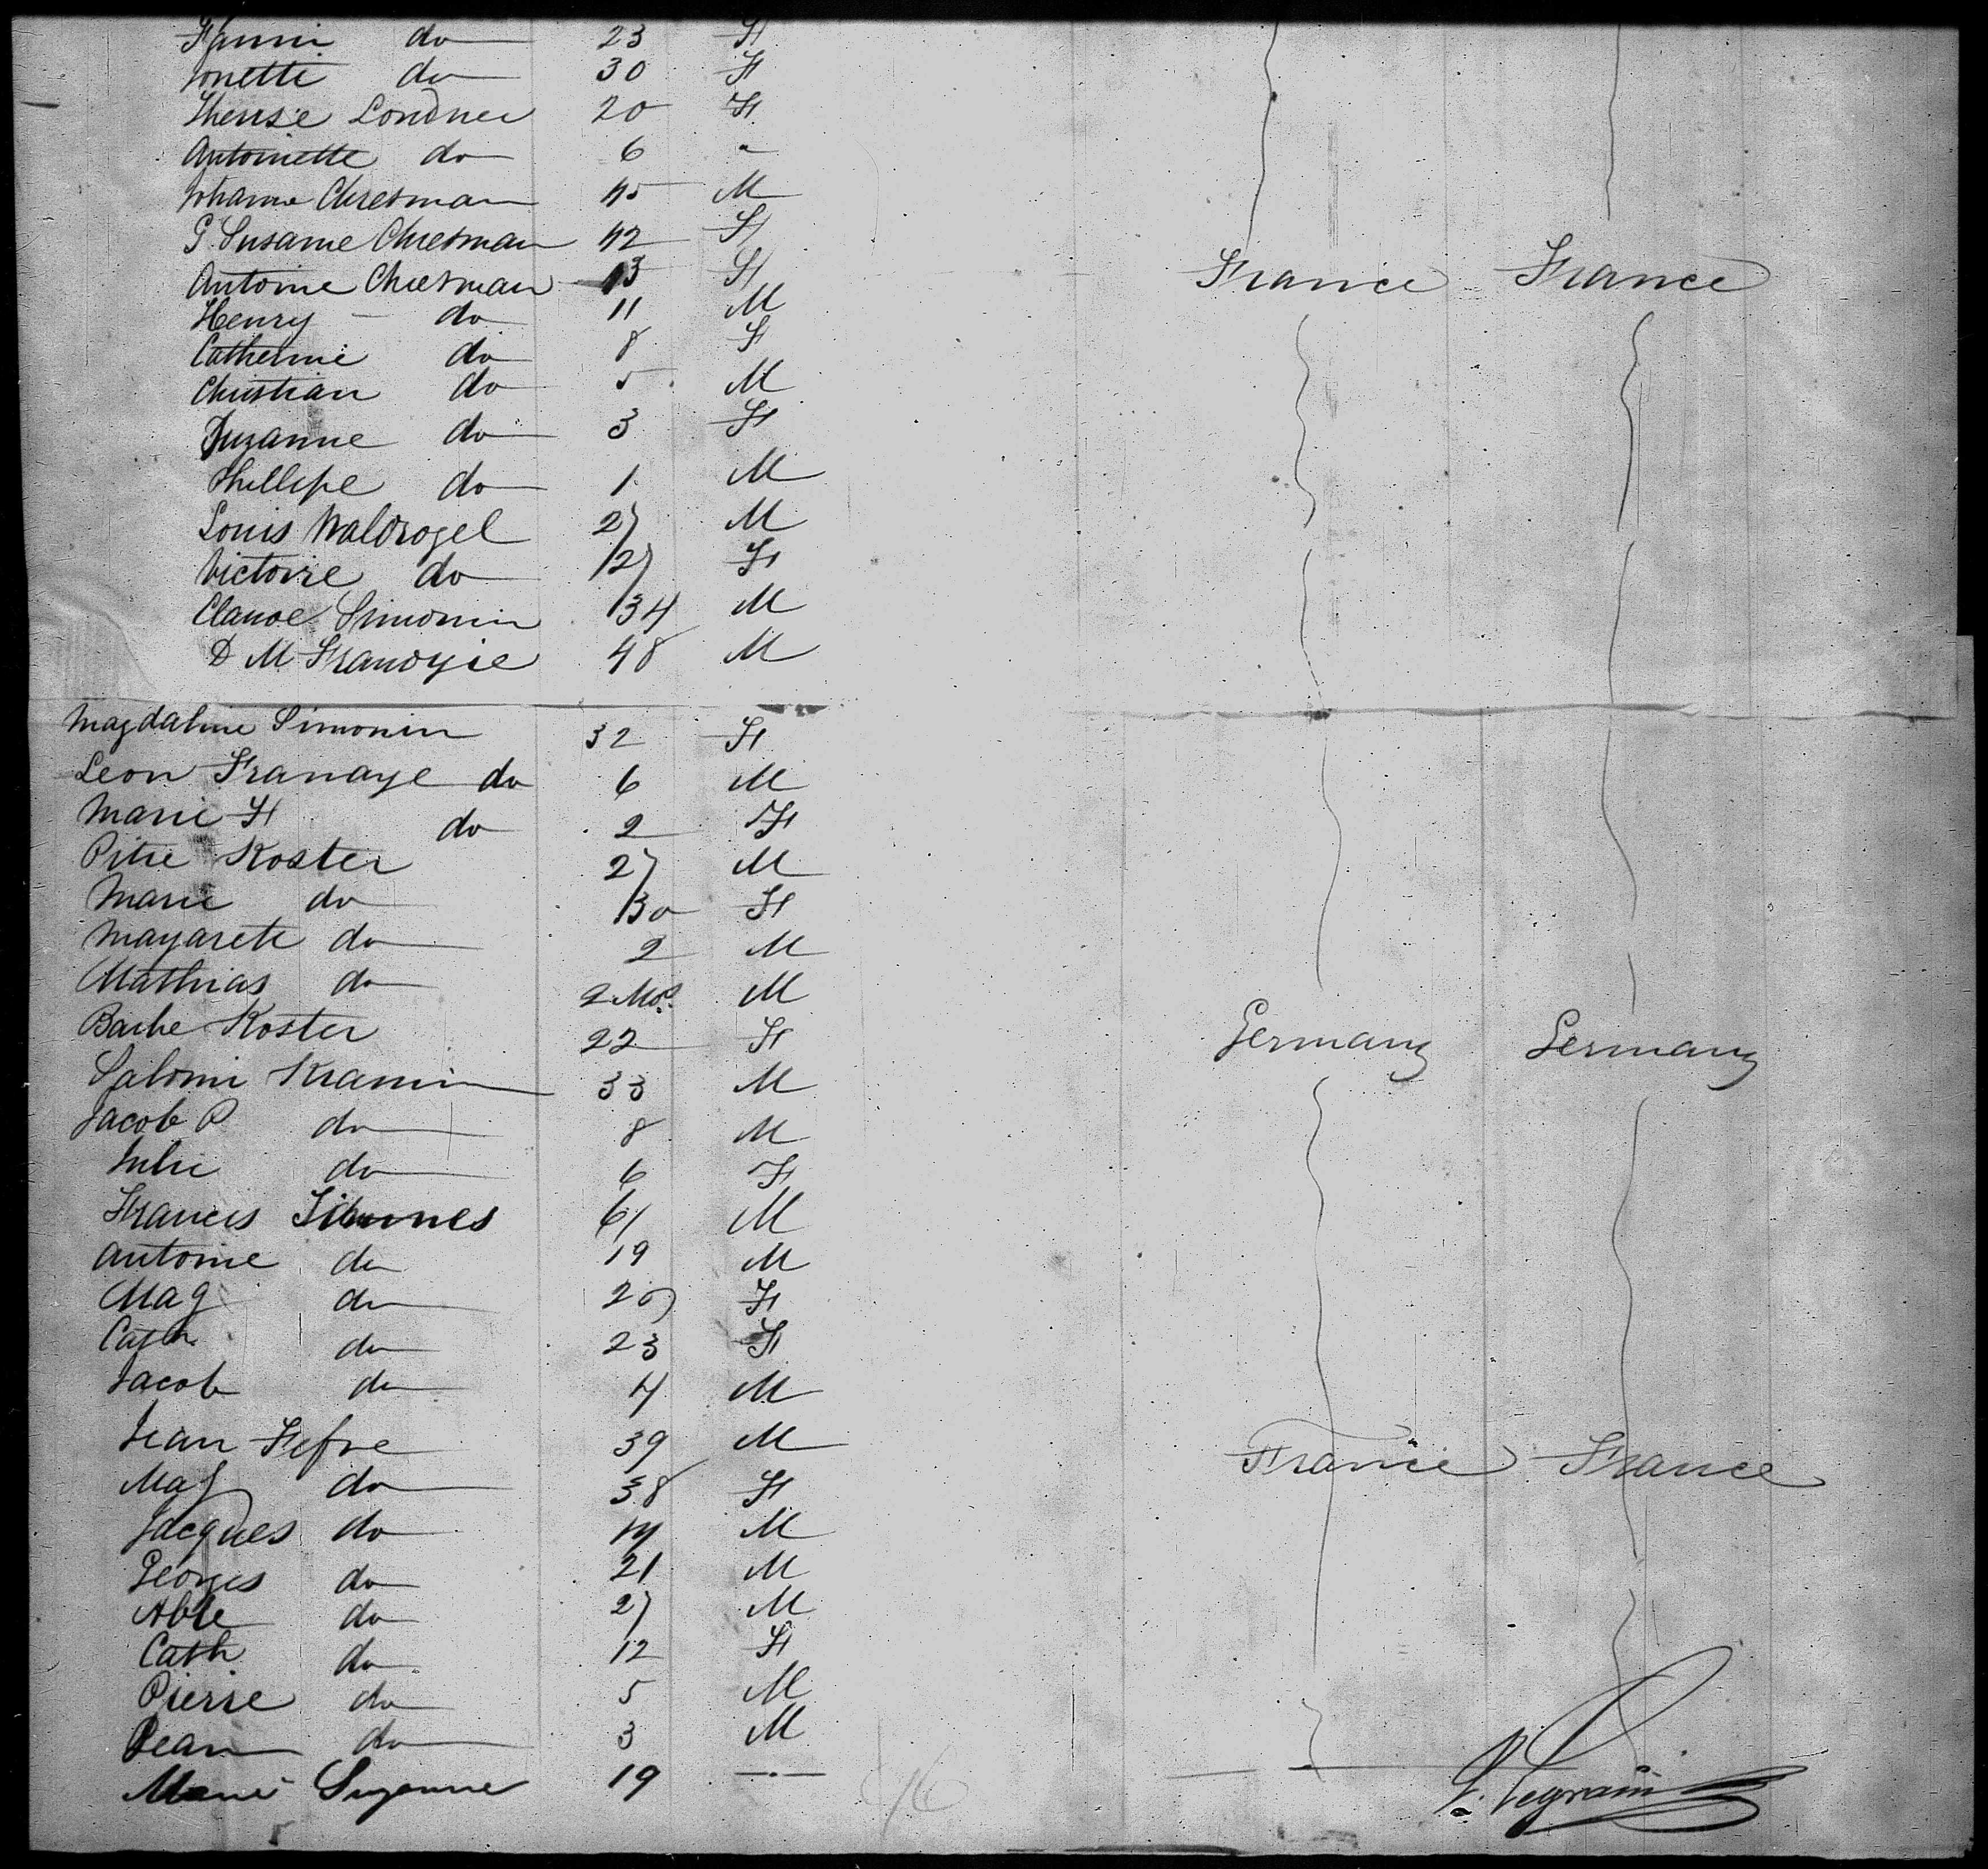 Fanni do 23 F
Jonette do 30 F
Therese Londner 20 F
Antoinette do 6 "
Johanne Chresman 45 M
P. Susanne Chresman 42 F
Antoine Chresman 13 F
France France
Henry do 11 M
Catherine do 8 F
Christian do 5 M
Suzanne do 3 F
Phillipe do 1 M
Louis Waldvogel 27 M
Victoire do 27 F
Claude Simonin 34 M
D M 48 M
Magdaline Simonin 32 F
Leon Franaye do 6 M
Marie F do 2 F
Pitre Koster 27 M
Marie do 30 F
Magarete do 2 M
Mathias do 2 Mos. M
Barbe Koster 22 F Germany Germany
Salomi 33 M
Jacob P do 8 M
Julie do 6 F
Francis 61 M
Antoine do 19 M
Mag do 20 F
Cath. do 23 F
Jacob do 4 M
Jean Fefre 39 M
France France
Mag do 38 F
Jacques do 14 M
Georges do 21 M
Able do 27 M
Cath do 12 F
Pierre do 5 M
Jean do 3 M
Marie Suzanne 19 —
L. Legrain